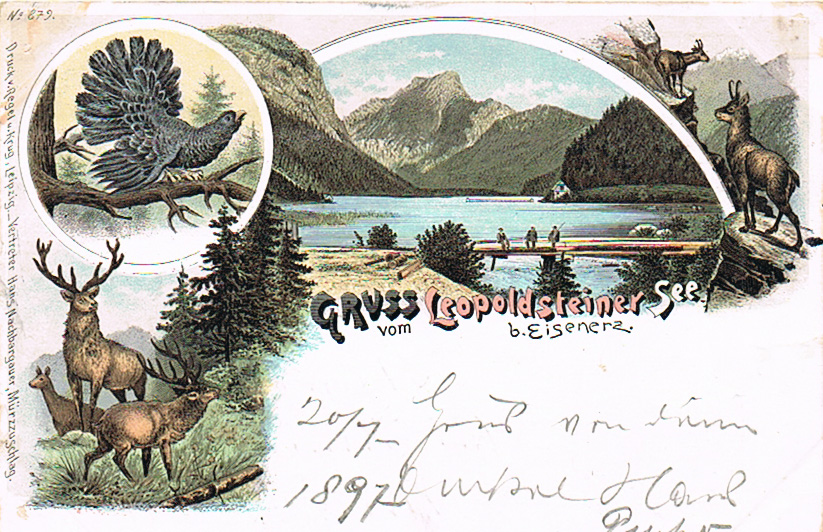 No 879.
Druck v. Regel u. Krug, Leipzig. _ Vertreter Hans Nachbargauer, Mürzzuschlag.
GRUSS vom Leopoldsteiner See.
b. Eisenerz.
20/7 Gruß von deinem
1897 Onkel Hans